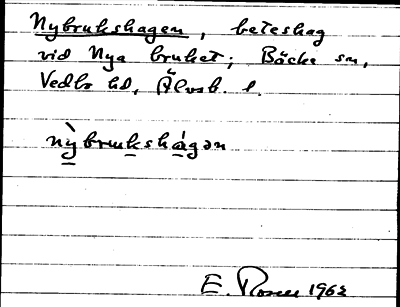 Nybrukshagen, beteshag
vid Nya bruket; Bäcke sn,
Vedbo hd, Älvsb. l.
nỳbrukshágən
E. Rosén 1962